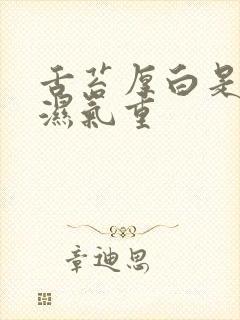 舌苔厚白是
濕氣重
章迪思